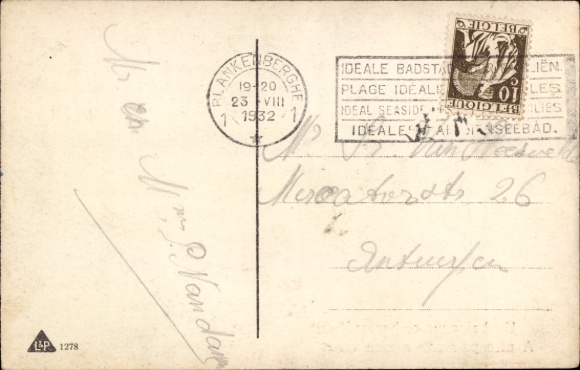 Mr en Mme P. Nandam
PLANKENBERGHE
19-20
23 VIII
1932
1 * 1
IDEALE BADSTAD LIËN.
PLAGE IDÉALE LES
IDEAL SEASIDE LIES
IDEALES SEEBAD.
BELGIE
10 C
BELGIQUE
Mr
Mercatorstr 26
Antwerpen
L&P 1278